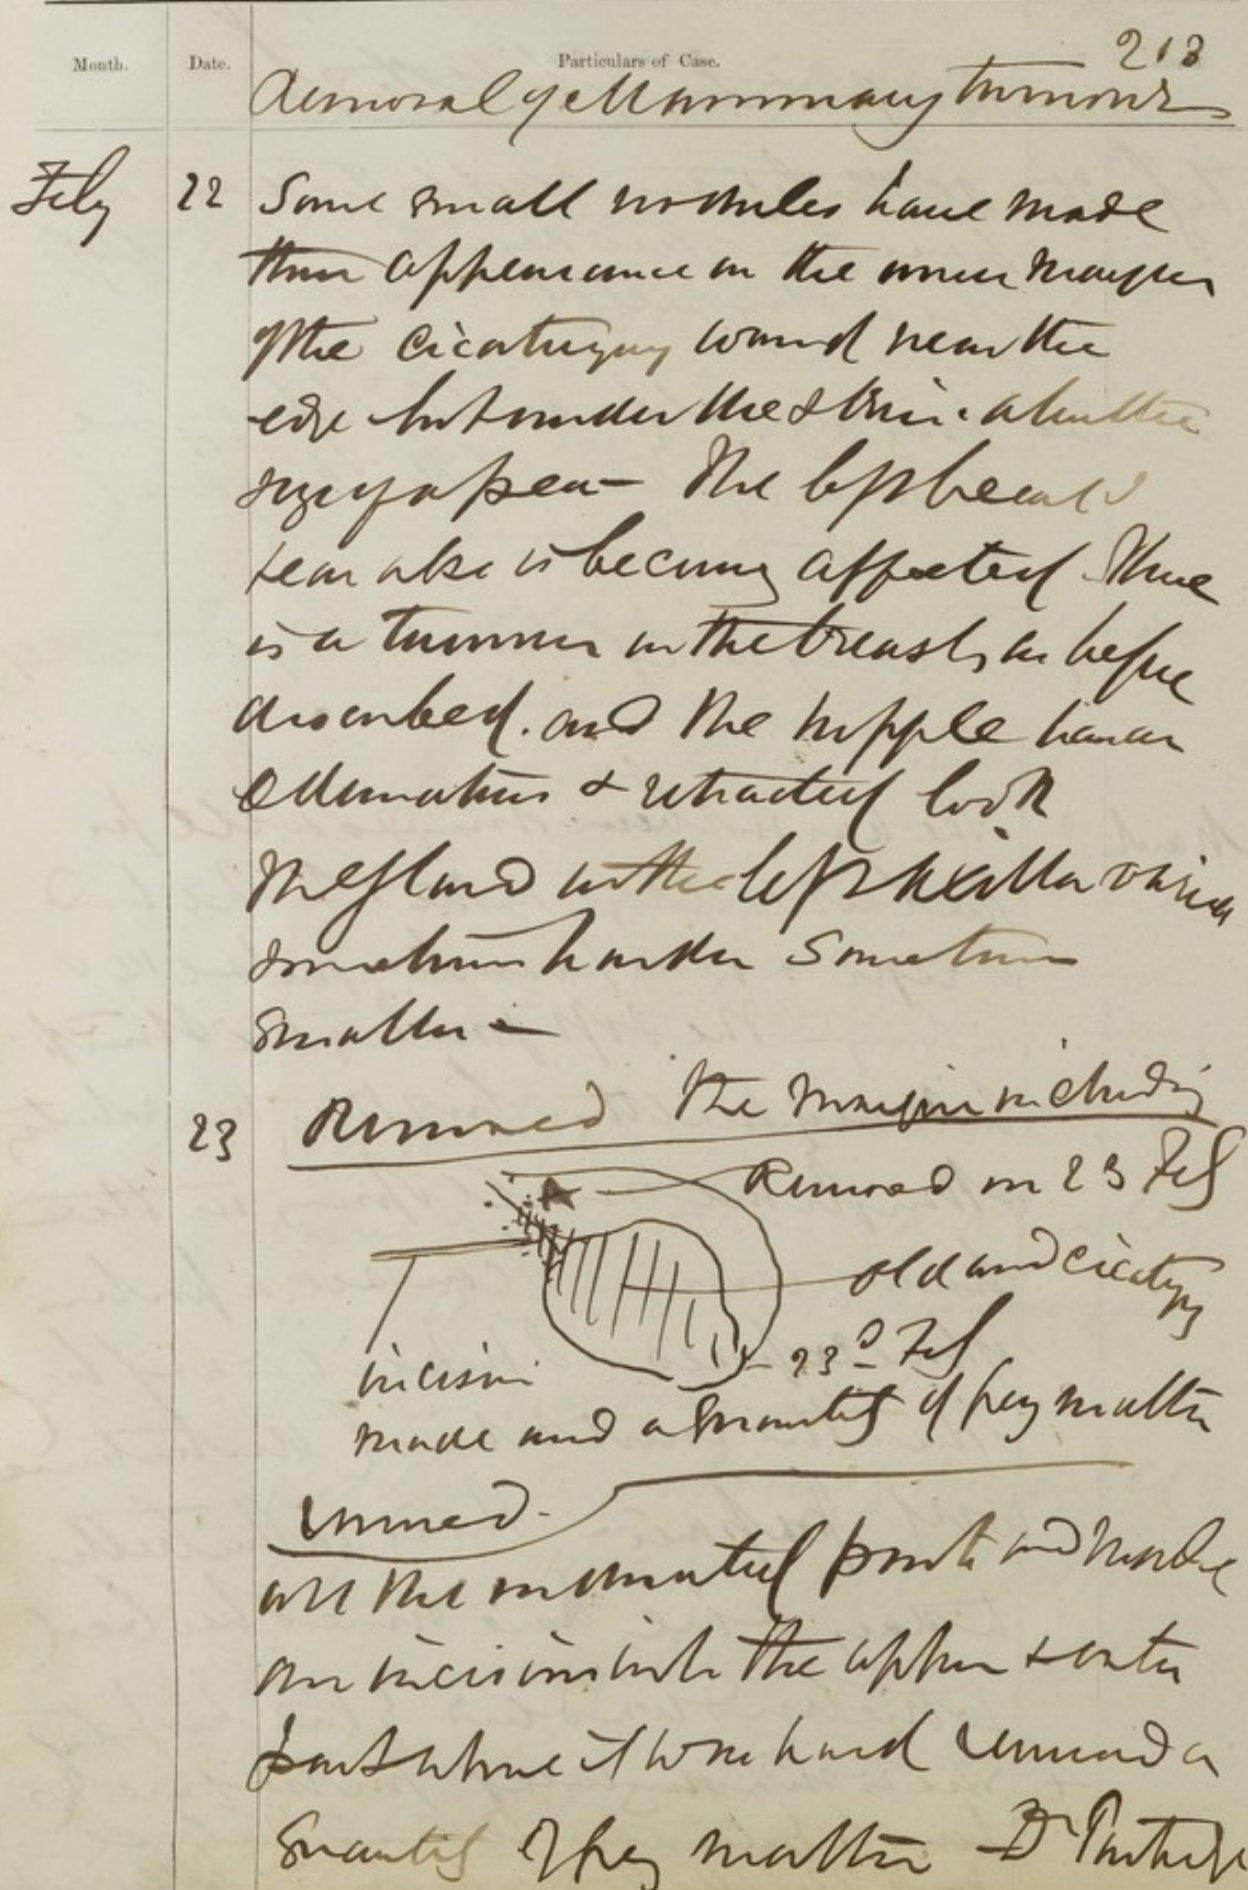 213
Month. Date. Particulars of Case.
Removal of Mammary tumour
Feby 22 Some small nodules have made
their appearance on the inner margin
of the cicatrizing wound near the
edge but under the skin. about the
size of a pea— The left breast I
fear also is becoming affected. There
is a tumour in the breast, as before
described. and the nipple has an
& retracted look
The gland in the left axilla varies
sometimes harder sometimes
smaller —
23 Removed the margin including
Removed on 23 Feb
old wound cicatrizing
23d Feb
incision
made and a quantity of grey matter
removed.
all the indurated points and made
an incision into the upper & outer
part where it was hard removed a
quantity of grey matter Dr Partridge